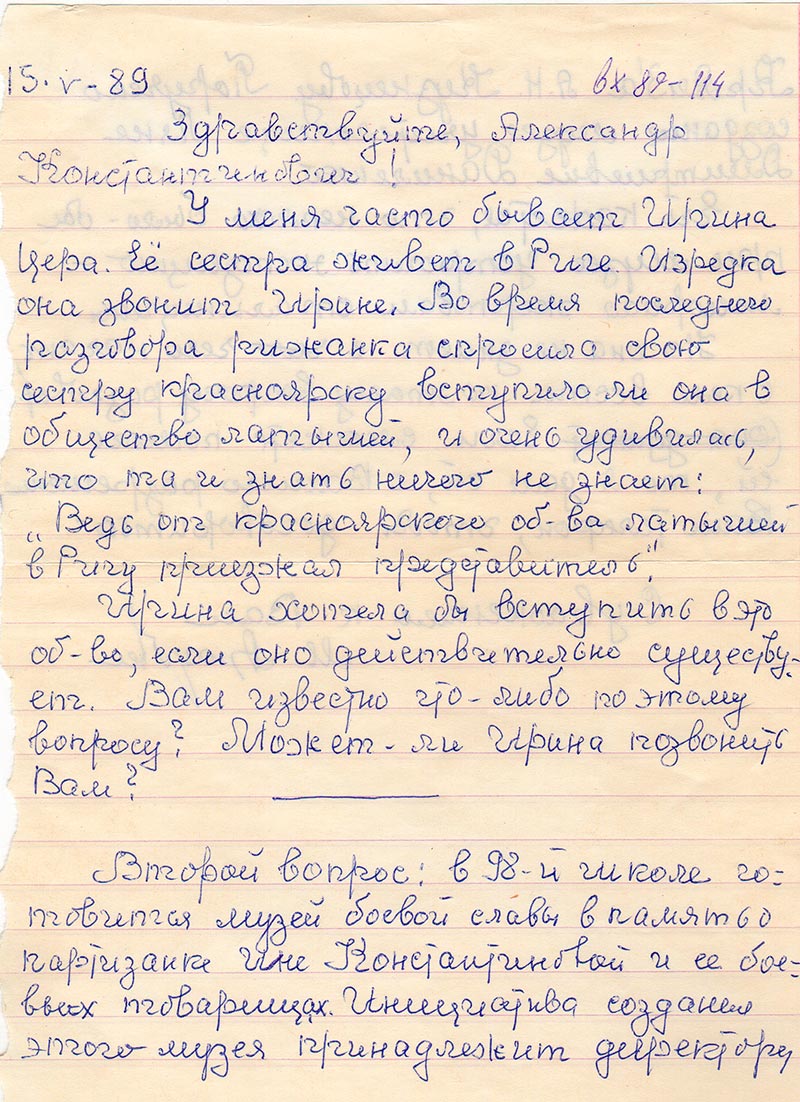 15.V-89
вх 89-114
Здравствуйте, Александр
Константинович!
У меня часто бывает Ирина
Цера. Её сестра живет в Риге. Изредка
она звонит Ирине. Во время последнего
разговора рижанка спросила свою
сестру красноярску вступила ли она в
общество латышей, и очень удивилась,
что та и знать ничего не знает:
„Ведь от красноярского об-ва латышей
в Ригу приезжал представитель".
Ирина хотела бы вступить в это
об-во, если оно действительно существу-
ет. Вам известно что-либо по этому
вопросу? Может-ли Ирина позвонить
Вам?
Второй вопрос: в 98-й школе го-
товится музей боевой славы в память о
партизанке Ине Константиновой и ее бое-
вых товарищах. Инициатива создания
этого музея принадлежит директору